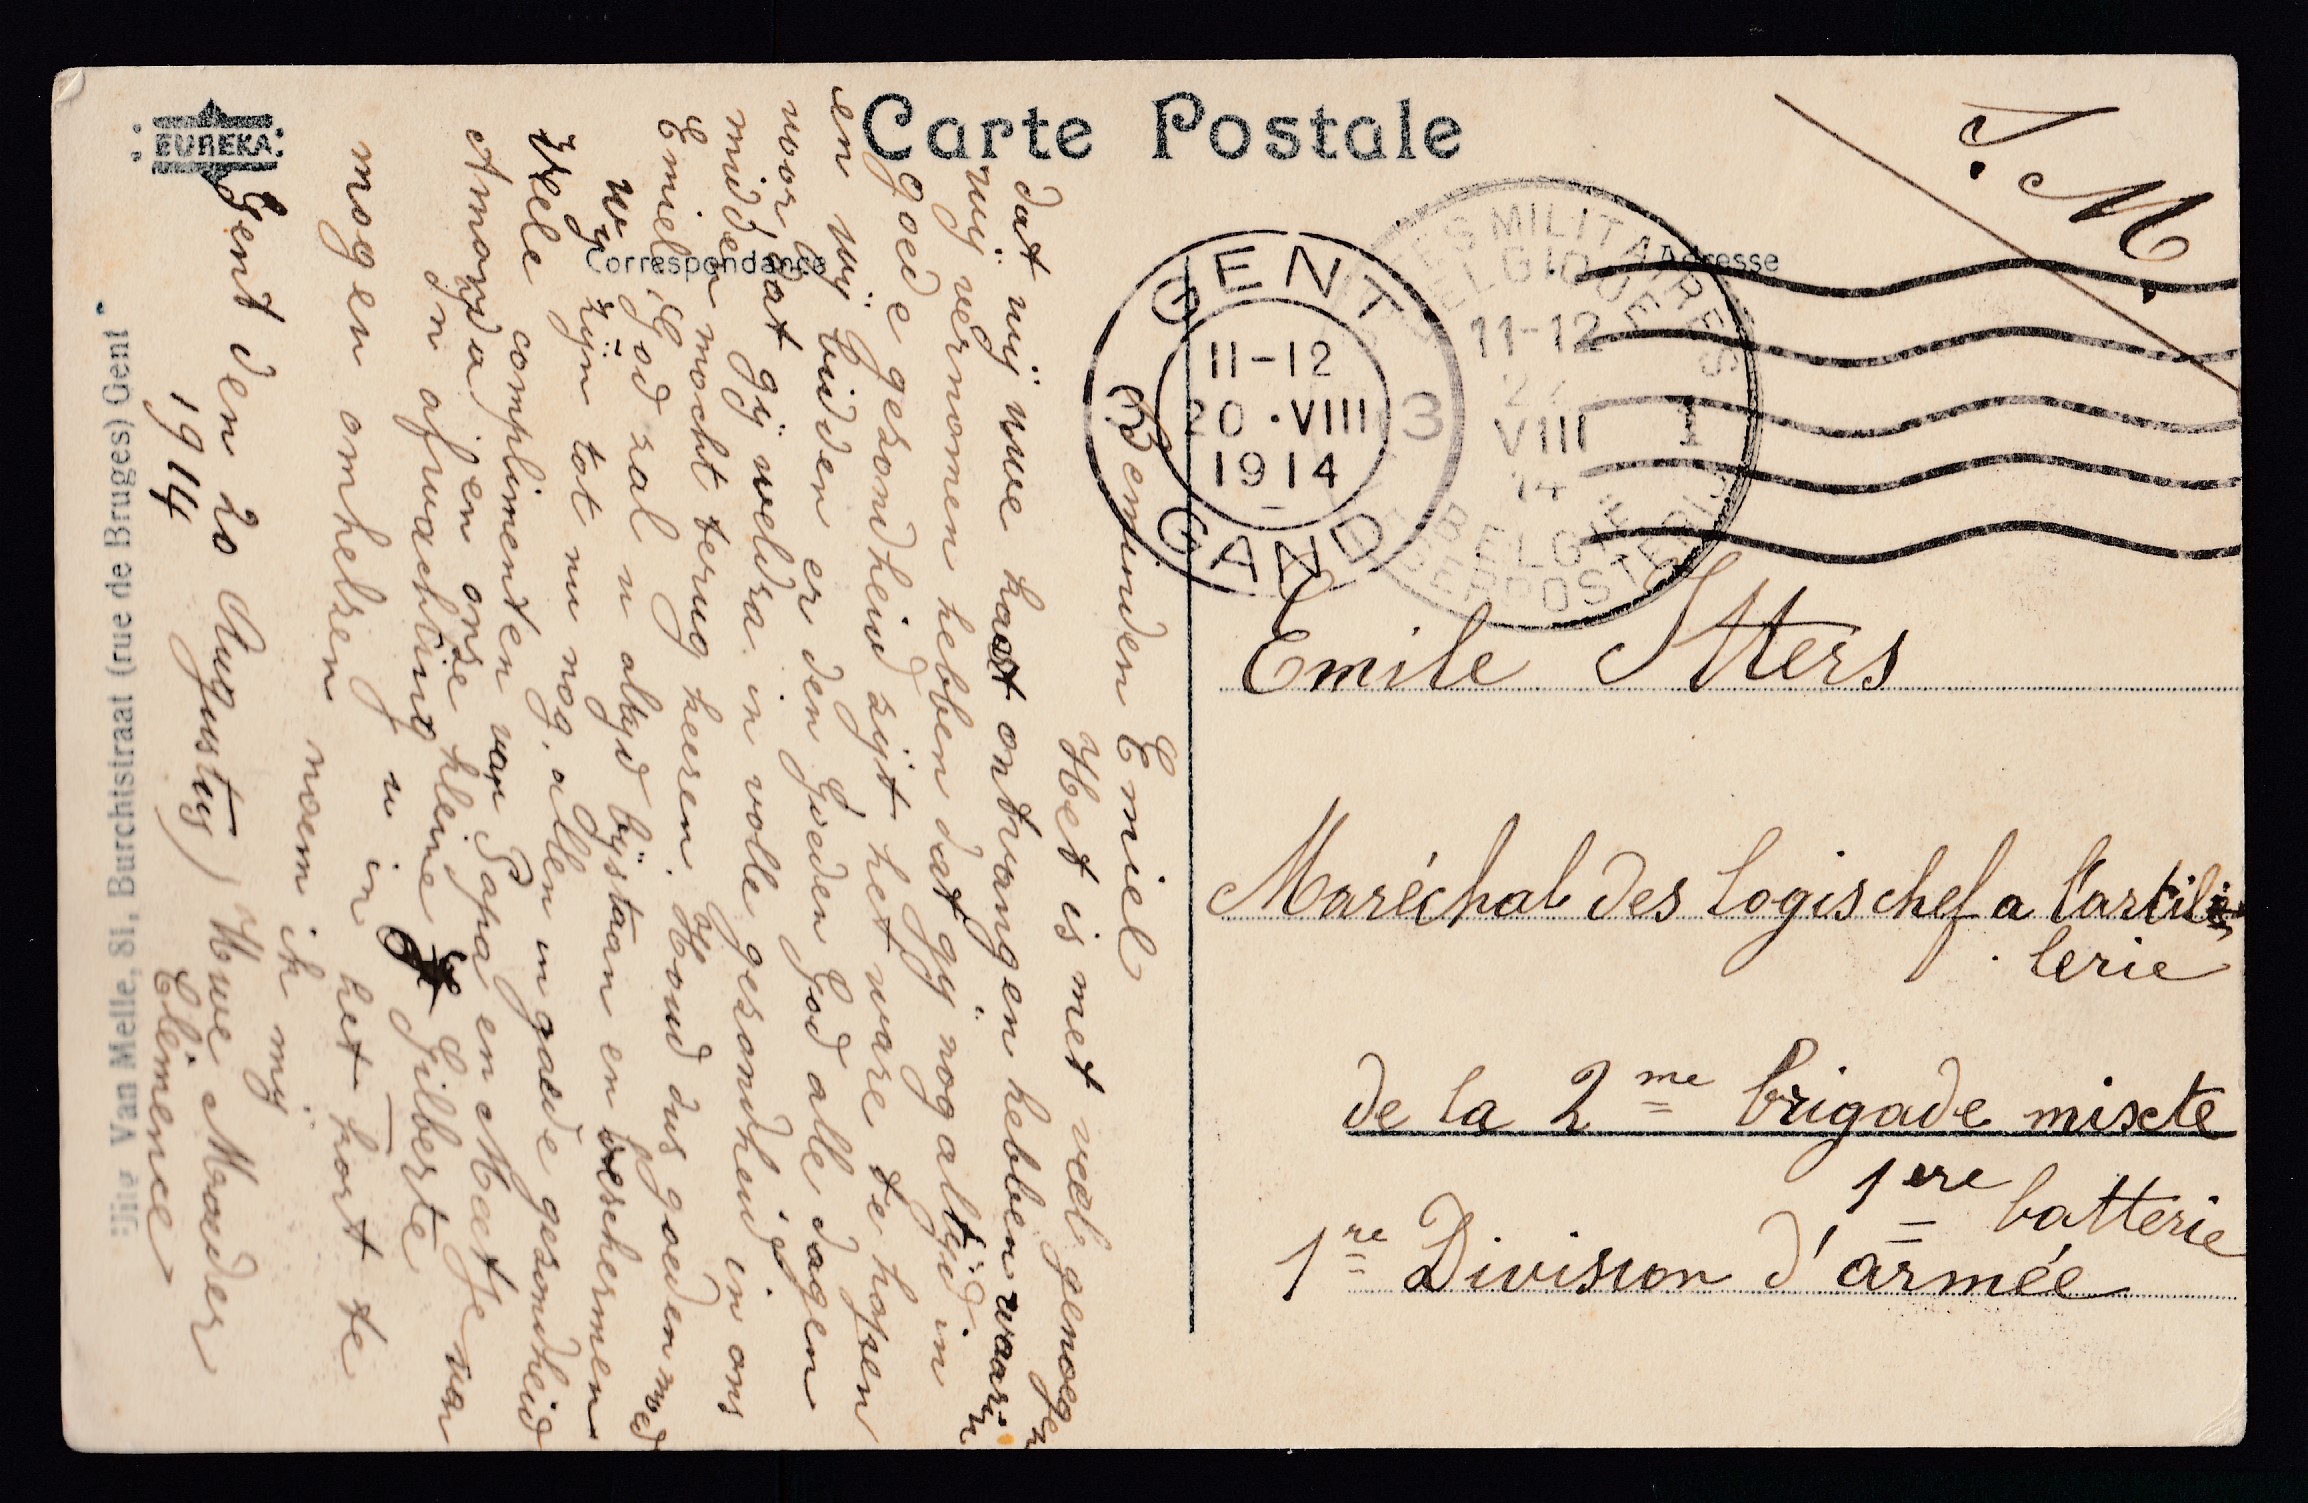 Carte Postale
EUREKA
Correspondance
Adresse
S. M.
GENT
3 3
11-12
20 · VIII
1914
GAND
POSTES MILITAIRES
BELGIQUE
11-12
22
VIII
14
1
BELGIE
LEGERPOSTERIJ
Emile Itters
Maréchal des logis chef a l'artil
lerie
de la 2me brigade mixte
1ere batterie
1re Division d'armée
Beminden Emiel
Het is met veel genoegen
dat wij uwe kaart ontvangen hebben waarin
wij vernomen hebben dat gij nog altijd in
goede gesondheid zijt het ware te hopen
en wij bidden er den Goeden God alle dagen
voor dat gij weldra in volle gesondheid in ons
midden mocht terug keeren. Houd dus goeden moed
Emiel, God zal u altijd bijstaan en beschermen
Wij zijn tot nu nog allen in goede gesondheid
Vele complimenten van Papa en Meetje van
Amanda en onze kleine Gilberte
In afwachting u in het kort te
mogen omhelsen noem ik mij
Uwe Moeder
Clémence
Gent den 20 Augustus)
1914
Uitg Van Melle, 81, Burchtstraat (rue de Bruges) Gent